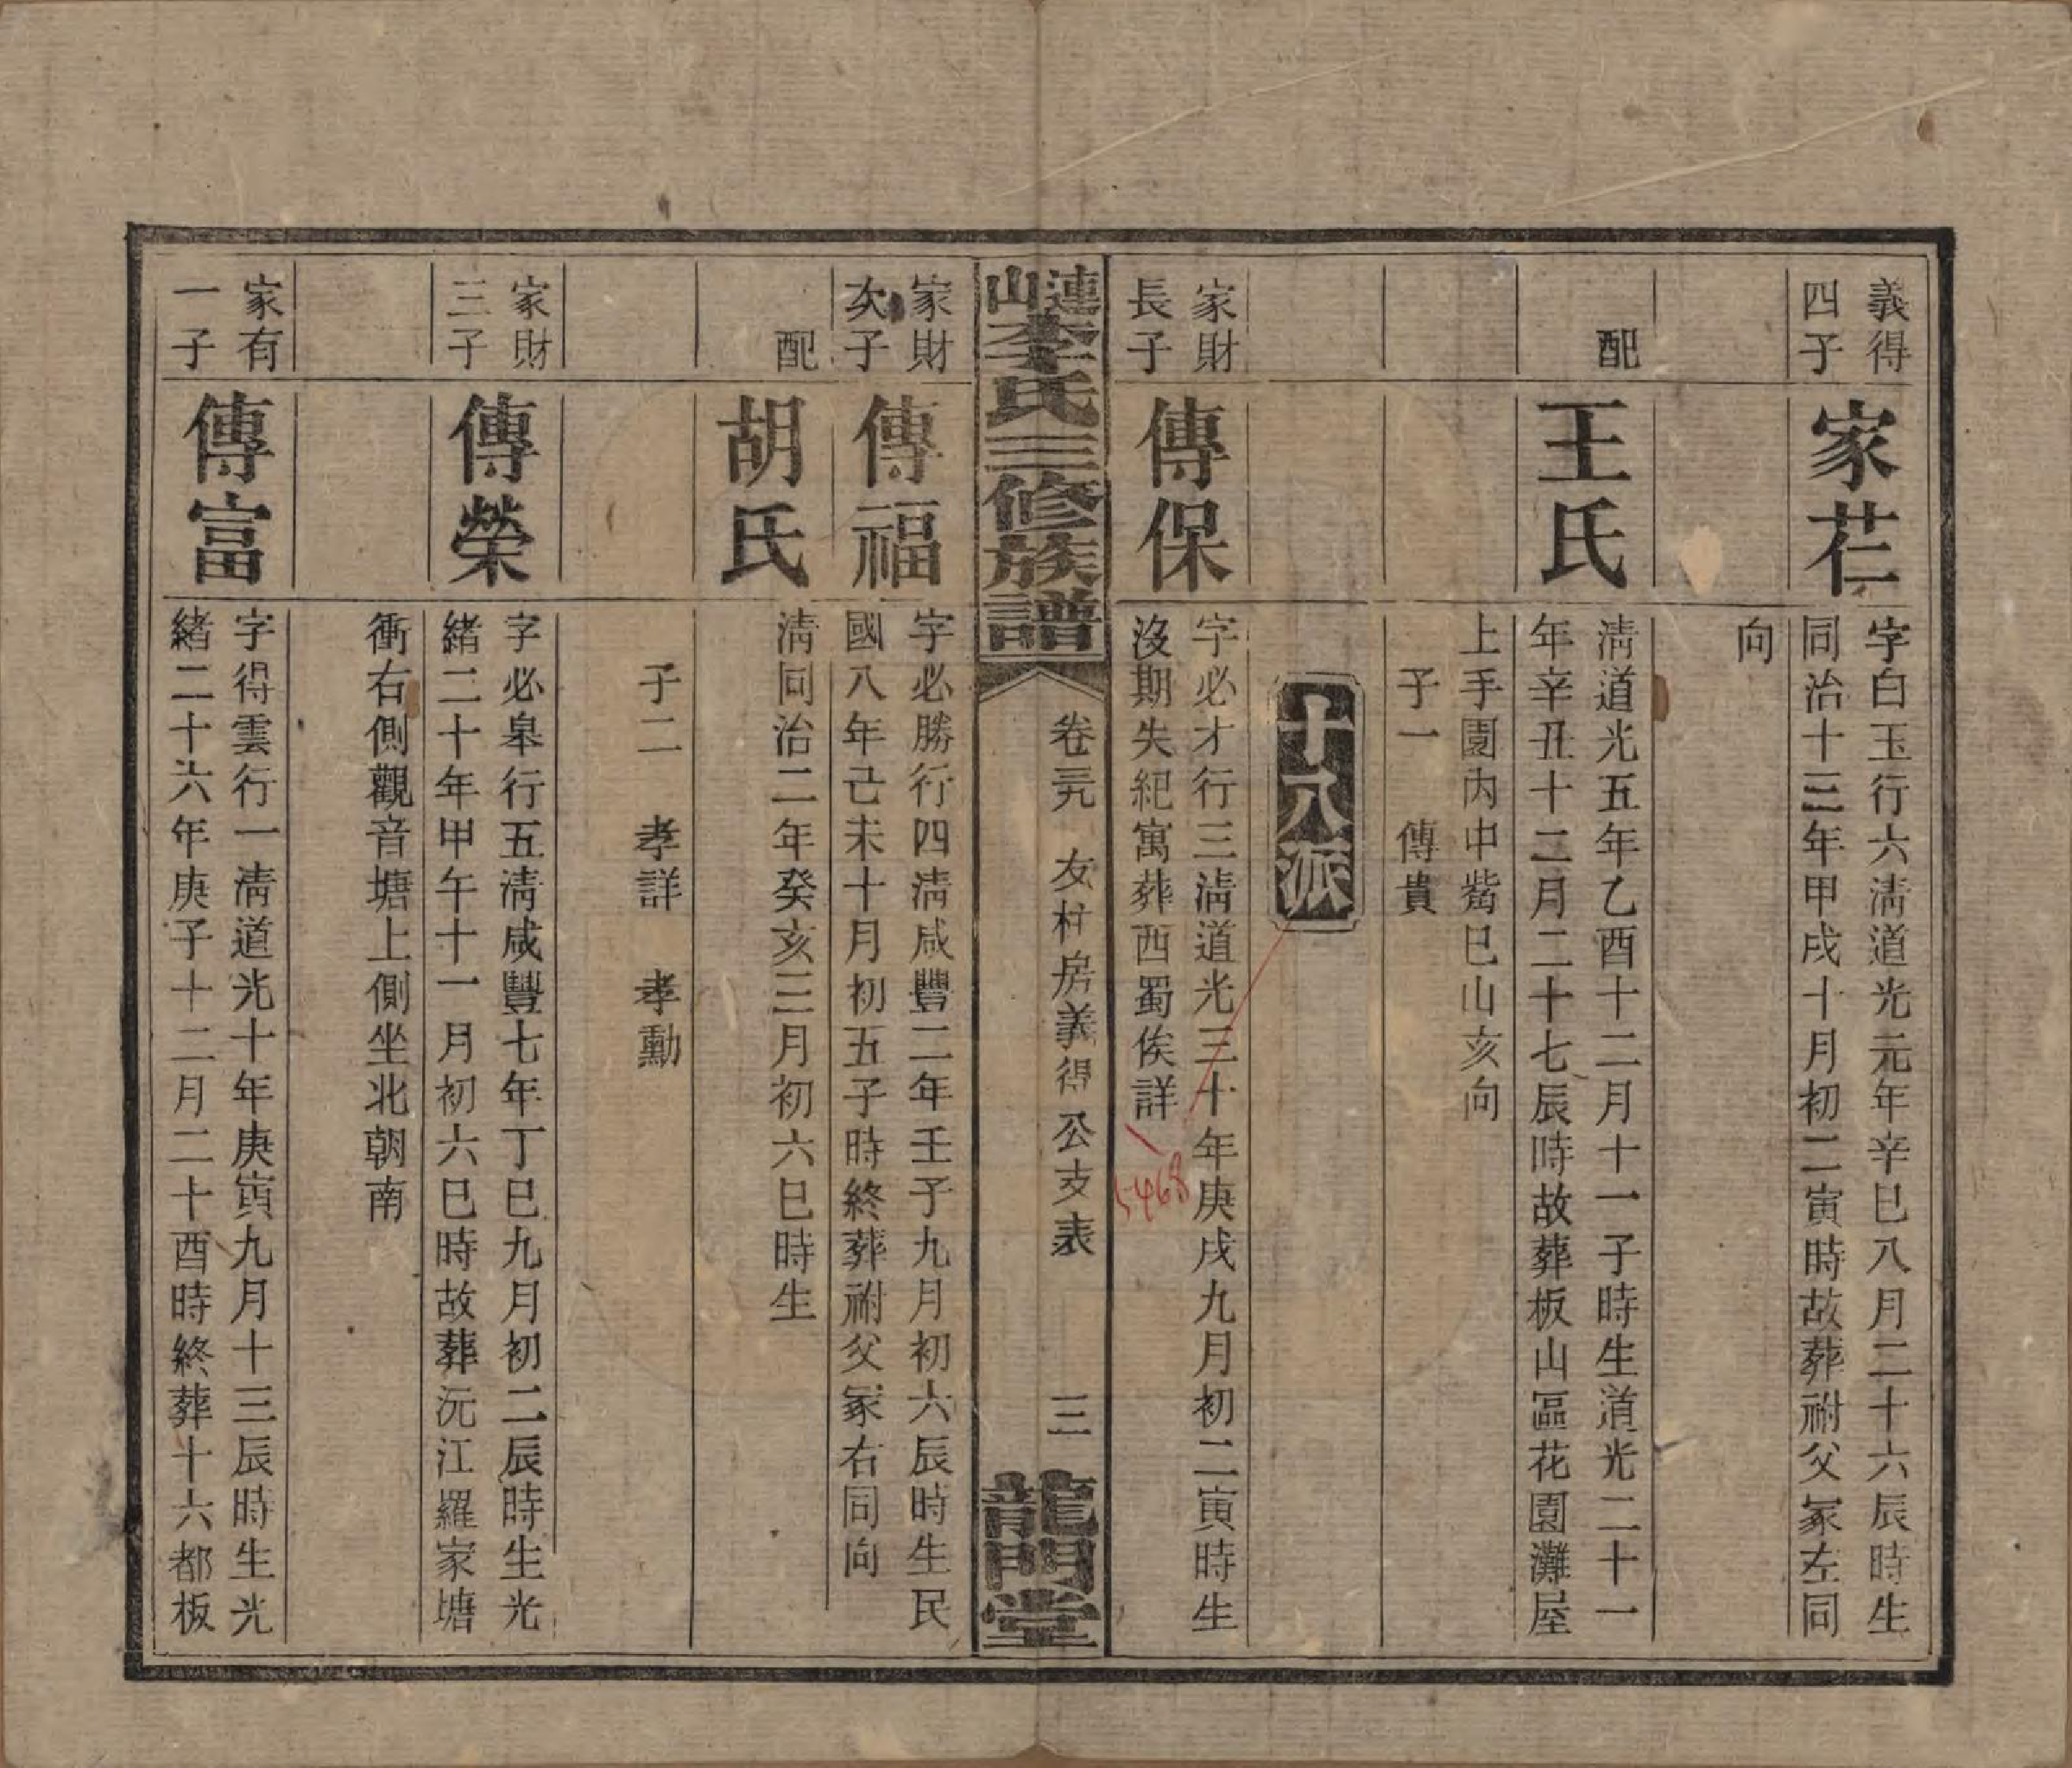 義得
四子
家芢
字白玉行六淸道光元年辛巳八月二十六辰時生
同治十三年甲戌十月初二寅時故葬祔父冢左同
向
配
王氏
淸道光五年乙酉十二月十一子時生道光二十一
年辛丑十二月二十七辰時故葬板山區花園灘屋
上手園內中嘴巳山亥向
子一　傳貴
十八派
家財
長子
傳保
字必才行三淸道光三十年庚戌九月初二寅時生
沒期失紀寓葬西蜀俟詳
5468
連山李氏三修族譜
卷三九　友柱房義得公支表　三
龍門堂
家財
次子
傳福
字必勝行四淸咸豐二年壬子九月初六辰時生民
國八年己未十月初五子時終葬祔父冢右同向
配
胡氏
淸同治二年癸亥三月初六巳時生
子二　孝詳　孝勳
家財
三子
傳榮
字必皋行五淸咸豐七年丁巳九月初二辰時生光
緒二十年甲午十一月初六巳時故葬沅江羅家塘
衝右側觀音塘上側坐北朝南
家有
一子
傳富
字得雲行一淸道光十年庚寅九月十三辰時生光
緒二十六年庚子十二月二十酉時終葬十六都板